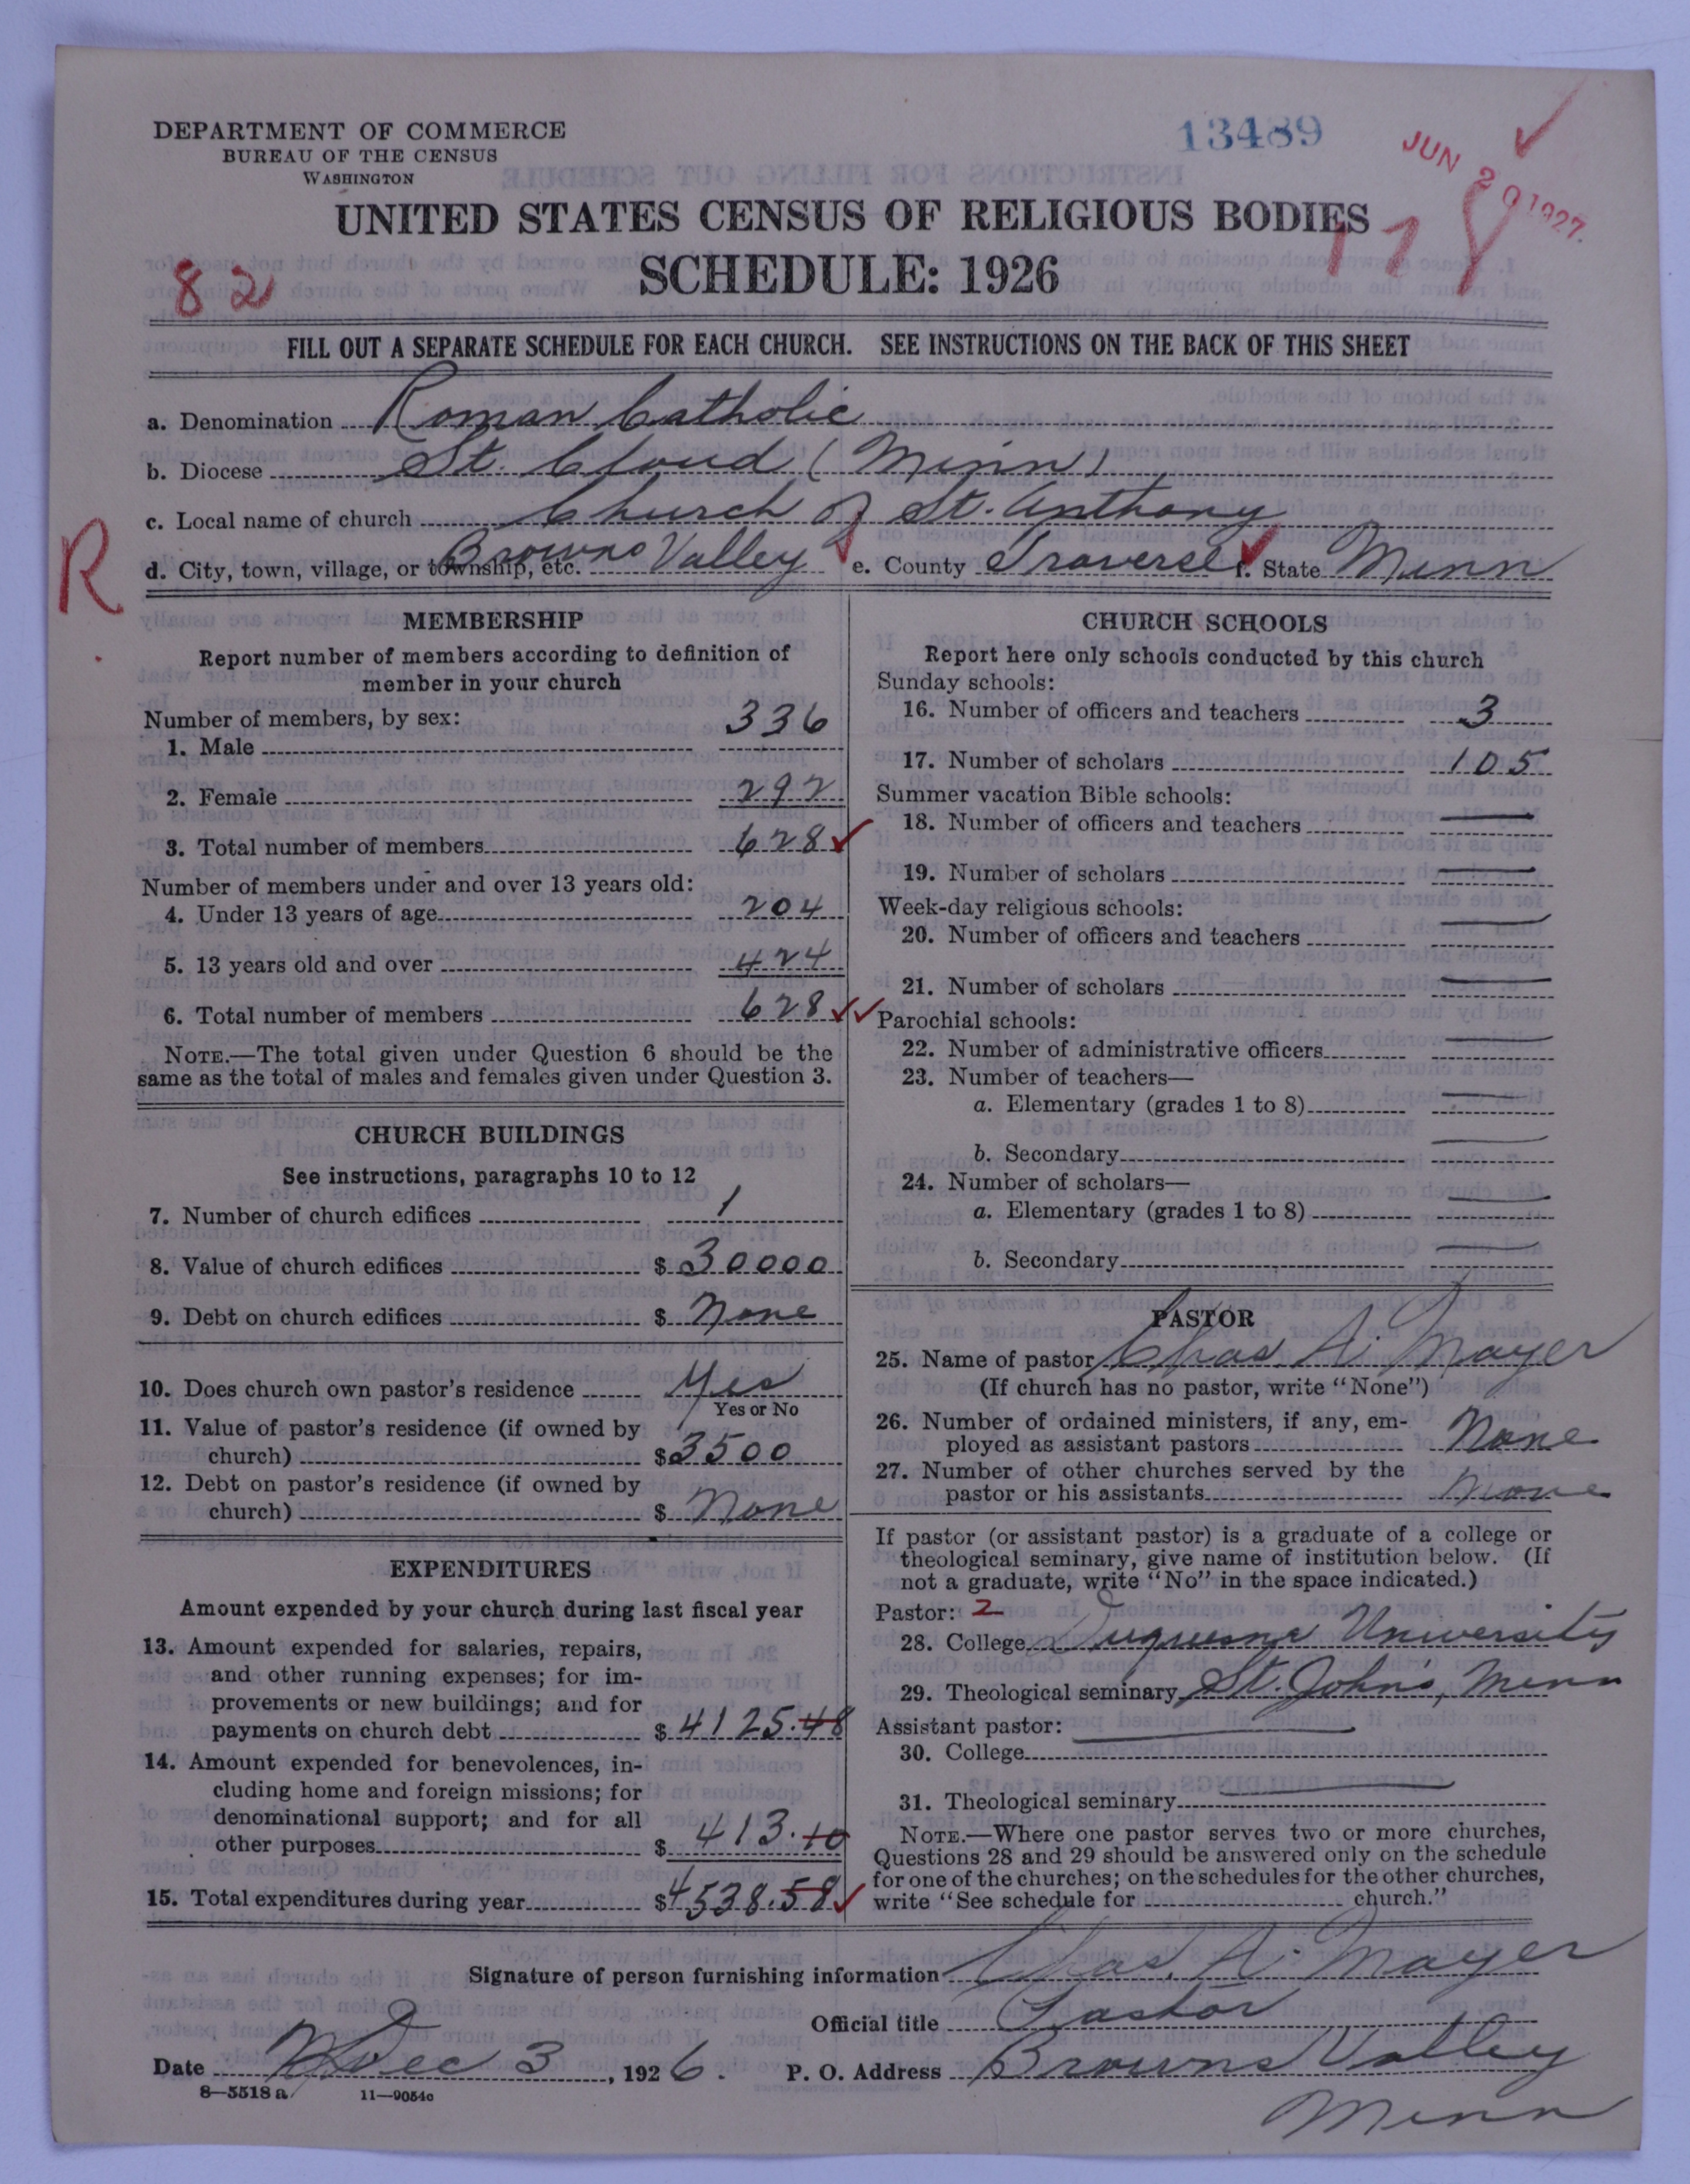 DEPARTMENT OF COMMERCE
BUREAU OF THE CENSUS
WASHINGTON
13489
JUN 20 1927
UNITED STATES CENSUS OF RELIGIOUS BODIES
SCHEDULE: 1926
82
117
FILL OUT A SEPARATE SCHEDULE FOR EACH CHURCH. SEE INSTRUCTIONS ON THE BACK OF THIS SHEET
a. Denomination Roman Catholic
b. Diocese St. Cloud (Minn)
c. Local name of church Church of St. Anthony
R
d. City, town, village, or township, etc. Browns Valley e. County Traverse f. State Minn
MEMBERSHIP
Report number of members according to definition of
member in your church
Number of members, by sex:
1. Male 336
2. Female 292
3. Total number of members 628
Number of members under and over 13 years old:
4. Under 13 years of age 204
5. 13 years old and over 424
6. Total number of members 628
NOTE.—The total given under Question 6 should be the
same as the total of males and females given under Question 3.
CHURCH BUILDINGS
See instructions, paragraphs 10 to 12
7. Number of church edifices 1
8. Value of church edifices $ 30000
9. Debt on church edifices $ None
10. Does church own pastor's residence Yes
Yes or No
11. Value of pastor's residence (if owned by
church) $ 3500
12. Debt on pastor's residence (if owned by
church) $ None
EXPENDITURES
Amount expended by your church during last fiscal year
13. Amount expended for salaries, repairs,
and other running expenses; for im-
provements or new buildings; and for
payments on church debt $ 4125.48
14. Amount expended for benevolences, in-
cluding home and foreign missions; for
denominational support; and for all
other purposes $ 413.10
15. Total expenditures during year $ 4538.58
CHURCH SCHOOLS
Report here only schools conducted by this church
Sunday schools:
16. Number of officers and teachers 3
17. Number of scholars 105
Summer vacation Bible schools:
18. Number of officers and teachers
19. Number of scholars
Week-day religious schools:
20. Number of officers and teachers
21. Number of scholars
Parochial schools:
22. Number of administrative officers
23. Number of teachers—
a. Elementary (grades 1 to 8)
b. Secondary
24. Number of scholars—
a. Elementary (grades 1 to 8)
b. Secondary
PASTOR
25. Name of pastor Chas A. Mayer
(If church has no pastor, write "None")
26. Number of ordained ministers, if any, em-
ployed as assistant pastors None
27. Number of other churches served by the
pastor or his assistants None
If pastor (or assistant pastor) is a graduate of a college or
theological seminary, give name of institution below. (If
not a graduate, write "No" in the space indicated.)
Pastor: 2
28. College Duquesne University
29. Theological seminary St. John's, Minn
Assistant pastor:
30. College
31. Theological seminary
NOTE.—Where one pastor serves two or more churches,
Questions 28 and 29 should be answered only on the schedule
for one of the churches; on the schedules for the other churches,
write "See schedule for church."
Signature of person furnishing information Chas. A. Mayer
Official title Pastor
Date Dec 3, 1926. P. O. Address Browns Valley
Minn
8—5518 a 11—9054c